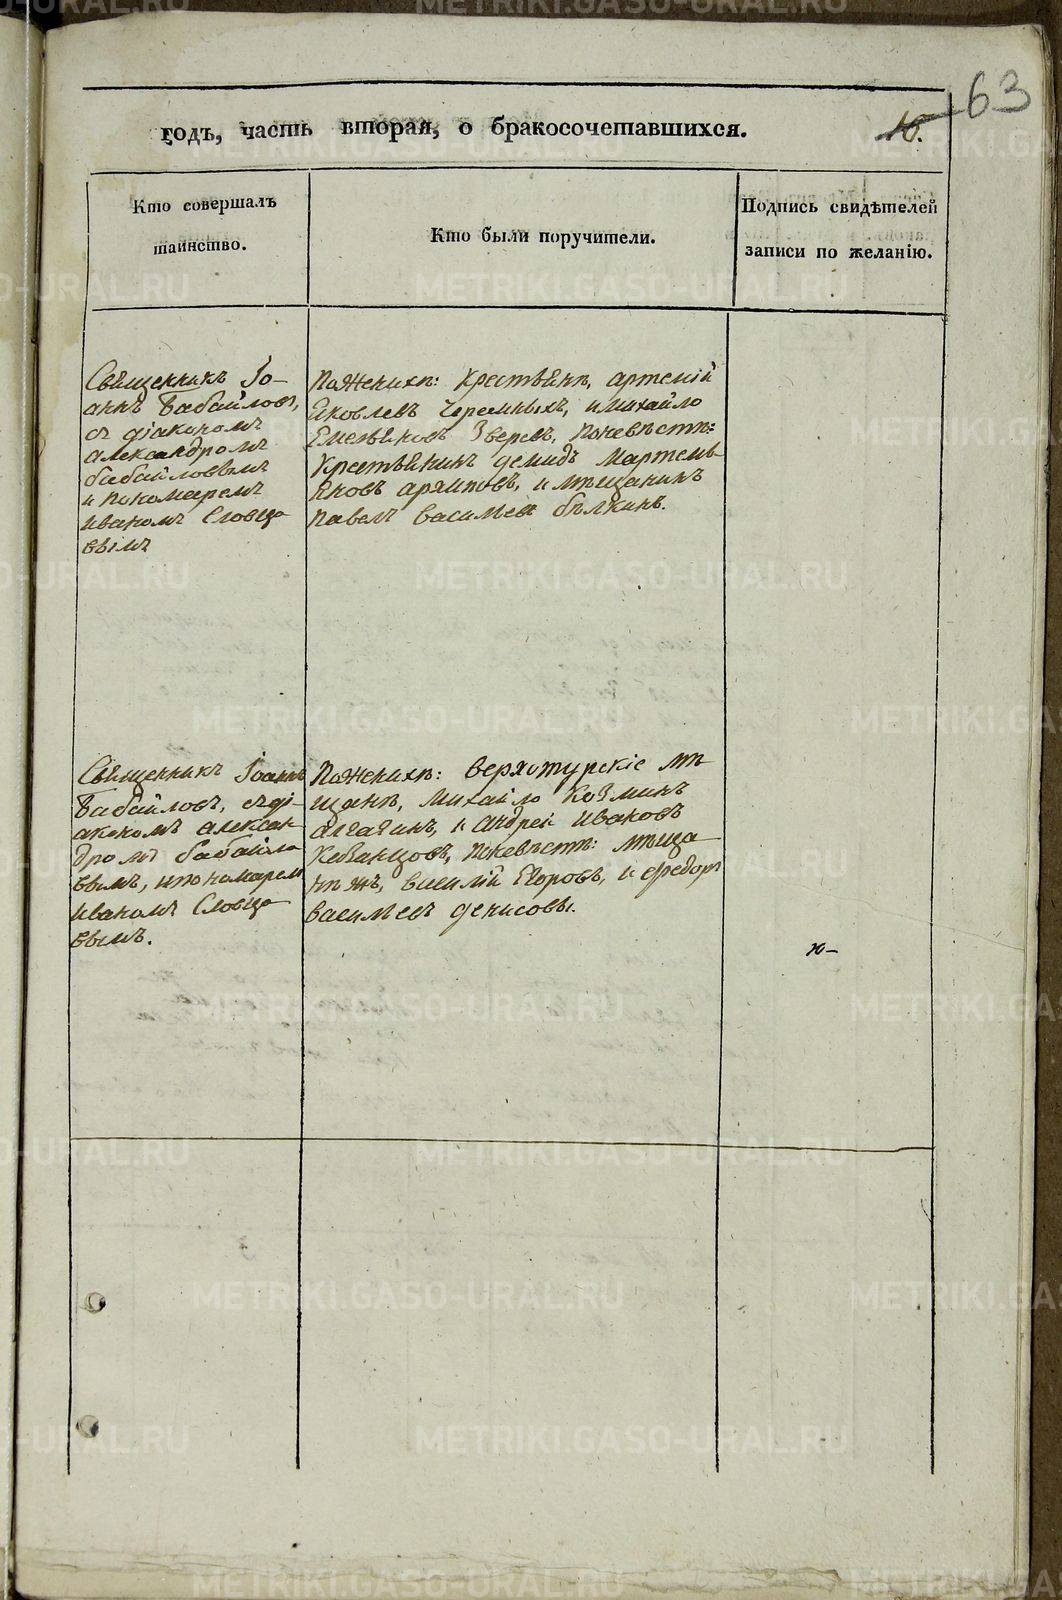 63
годъ, часть вторая, о бракосочетавшихся.
10.
Кто совершалъ
таинство.
Кто были поручители.
Подпись свидѣтелей
записи по желанію.
Священникъ Іо-
аннъ Бабайловъ,
съ діакономъ
александромъ
бабайловымъ
и пономаремъ
иваномъ Словцо
вымъ
Пожениху: Крестьяне, артемій
Яковлевъ Черемныхъ, и михайло
Емельяновъ Зверевъ, Поневѣсте:
Крестьянинъ демидъ Мартемь
яновъ архиповъ, и мѣщанинъ
Павелъ васильев бѣлкинъ.
Священникъ Іоаннъ
Бабайловъ, съ ді-
акономъ алексан
дромъ бабайло
вымъ, и пономаремъ
иваномъ Словцо
вымъ.
Пожениху: верхотурскіе мѣ
щане, михайло Козминъ
и андрей ивановъ
Поневѣсте: мѣща
не жъ, василій Егоровъ, и федоръ
васильевъ денисовы.
ю-
METRIKI.GASO-URAL.RU